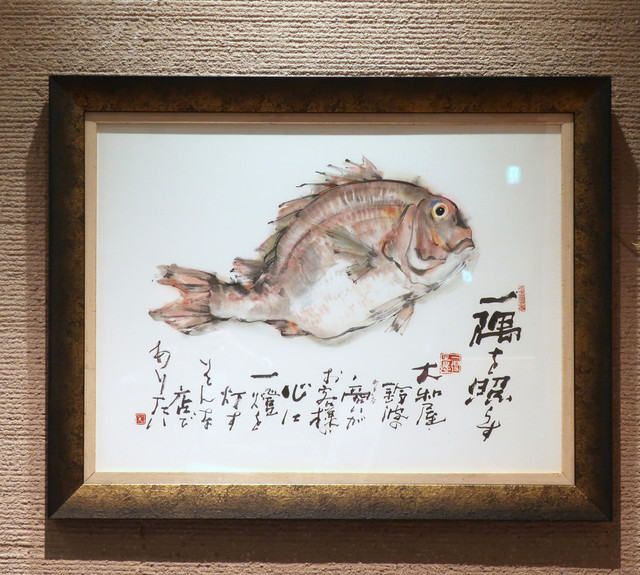 一隅を照らす
大和屋
鈴波
商いが
お客様
心に
一燈を
灯す
そんな
店で
ありたい